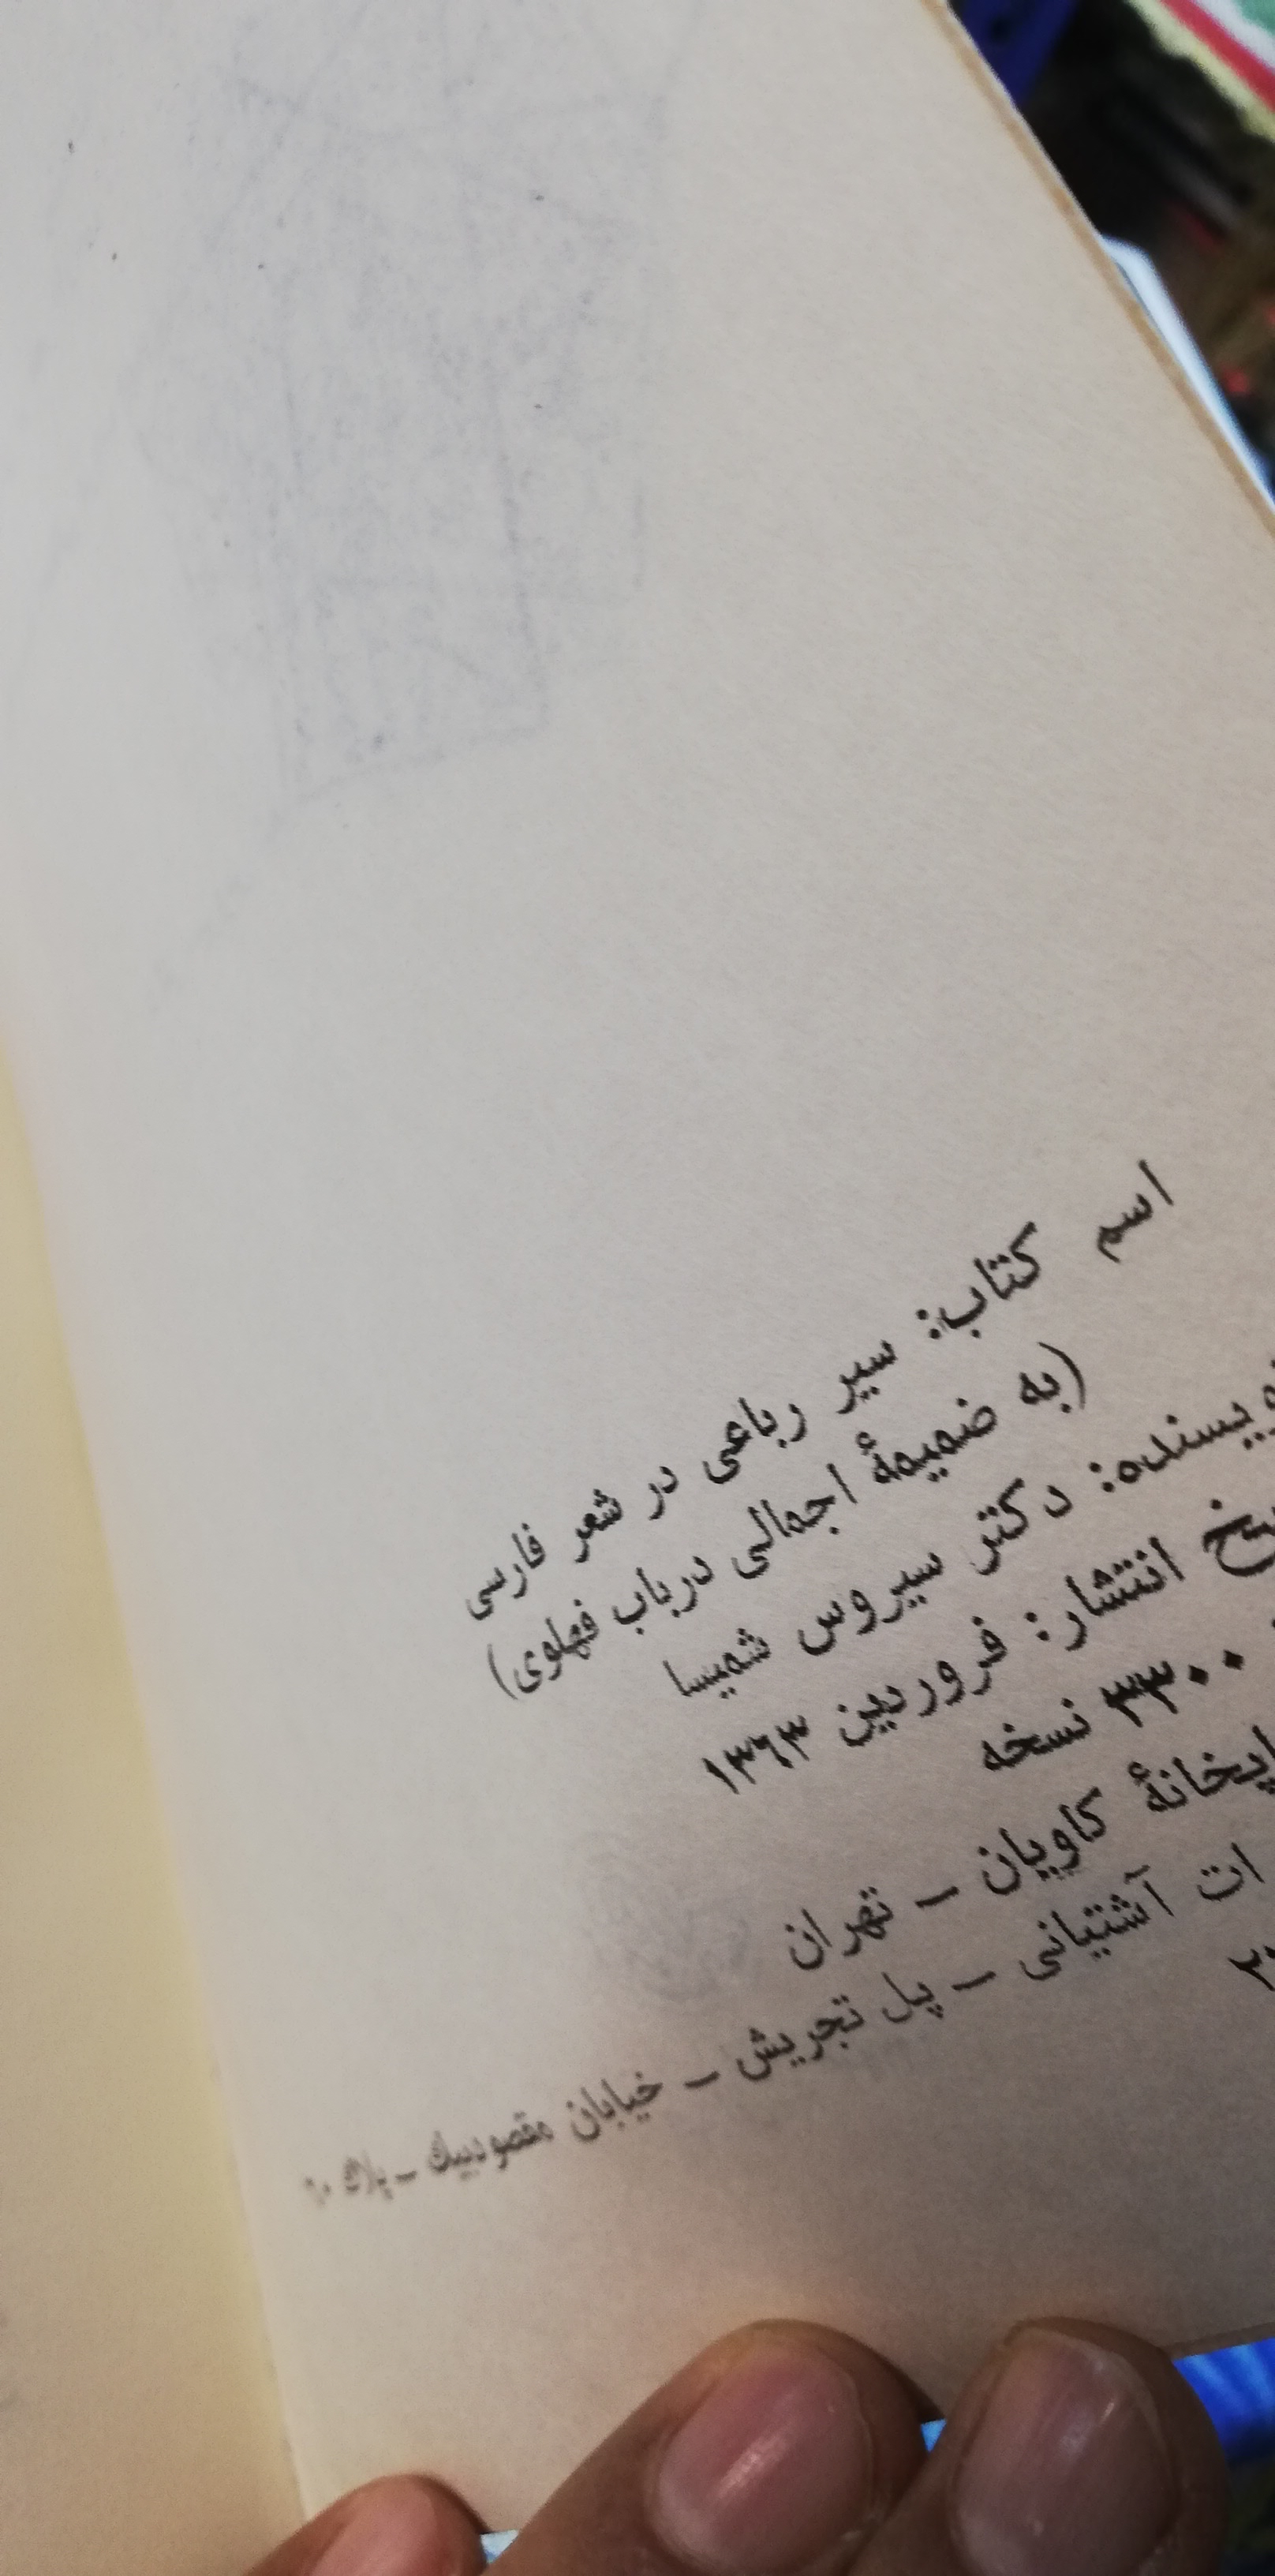 اسم کتاب: سیر رباعی در شعر فارسی
(به ضمیمهٔ اجمالی درباب فهلوی)
ویسنده: دکتر سیروس شمیسا
یخ انتشار: فروردین ۱۳۶۳
۳۳۰۰ نسخه
اپخانهٔ کاویان – تهران
ات آشتیانی – پل تجریش – خیابان مقصودبیك – پلاك ۶۰